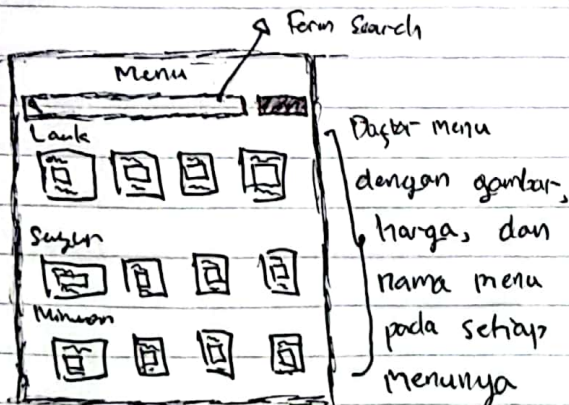 Form Search
Menu
Lauk
Sayur
Minuman
Daftar menu
dengan gambar,
harga, dan
nama menu
pada setiap
menunya